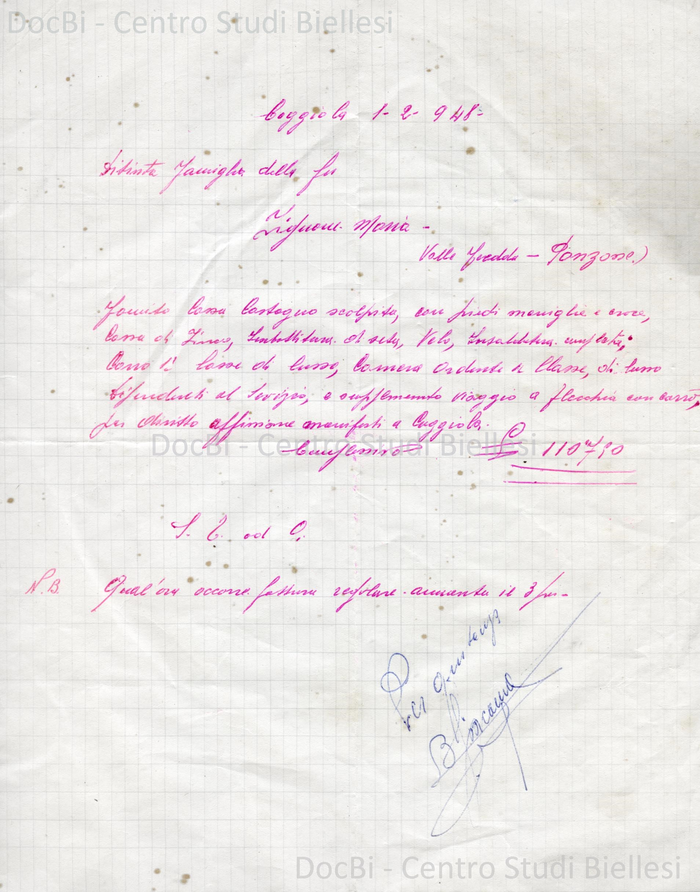 DocBi - Centro Studi Biellesi
Coggiola 1-2-948=
Distinta famiglia della fu
Zignone Maria -
Valle fredda - Ponzone)
Fornito Cassa Castagno scolpita, con piedi maniglie e croce,
Cassa di Zinco, Imbottitura di seta, Velo,
Carro 1ª Classe di lusso, Camera Ardente 1ª Classe, di lusso
al Servizio, e supplemento viaggio a Flecchia con carro,
per diritto affissione manifesti a Coggiola.
DocBi - Centro Studi Biellesi
£ 110790
S. E. od O.
N.B. Qual'ora occorre fattura regolare aumenta il 3 per-
Per quietanza
DocBi - Centro Studi Biellesi